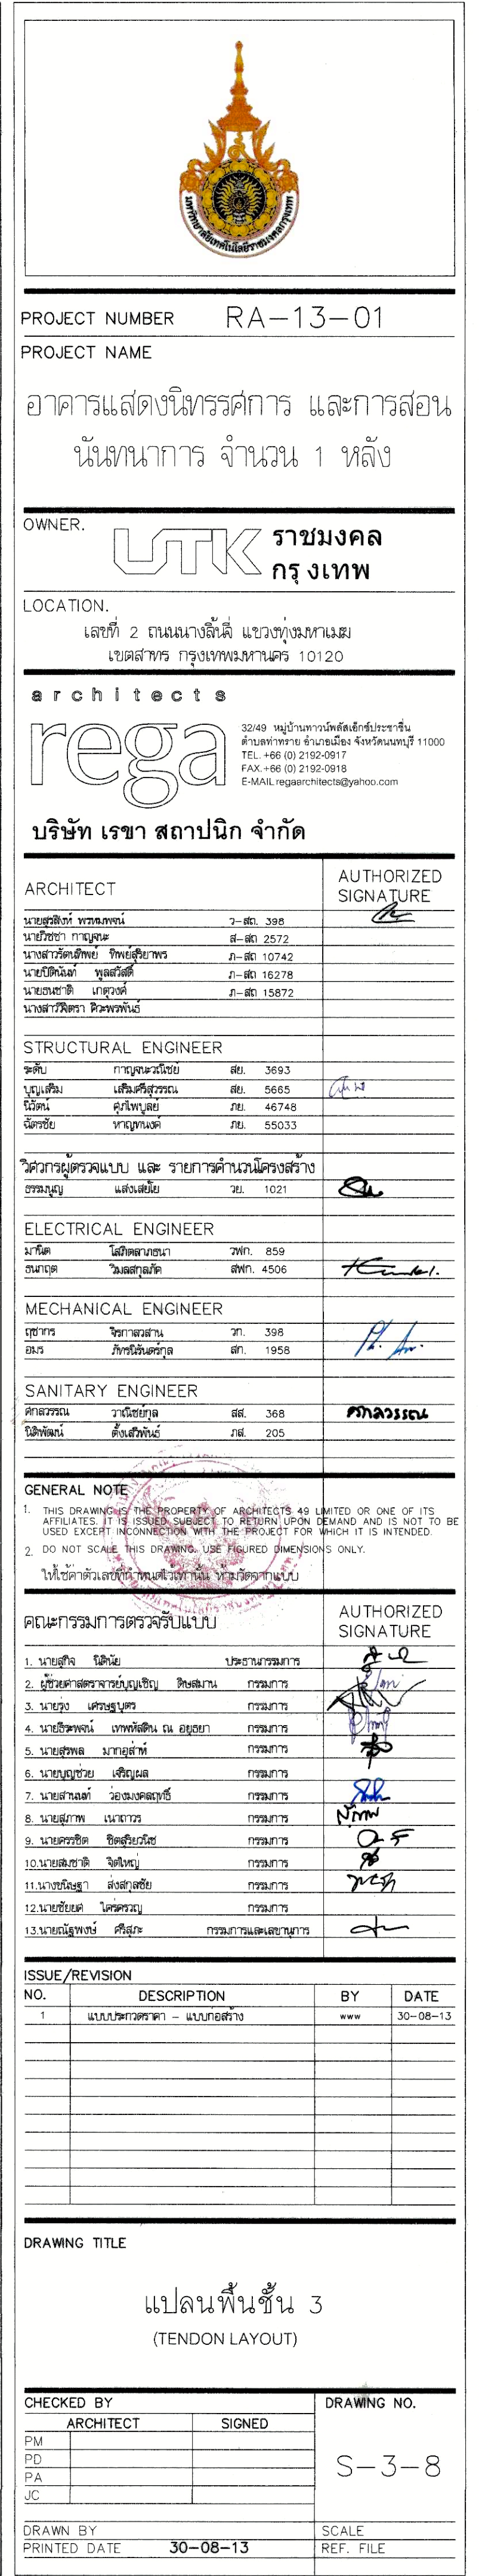 มหาวิทยาลัยเทคโนโลยีราชมงคลกรุงเทพ
PROJECT NUMBER RA-13-01
PROJECT NAME
อาคารแสดงนิทรรศการ และการสอน
นันทนาการ จำนวน 1 หลัง
OWNER.
UTK ราชมงคล
กรุงเทพ
LOCATION.
เลขที่ 2 ถนนนางลิ้นจี่ แขวงทุ่งมหาเมฆ
เขตสาทร กรุงเทพมหานคร 10120
architects
rega
32/49 หมู่บ้านทาวน์พลัสเอ็กซ์ประชาชื่น
ตำบลท่าทราย อำเภอเมือง จังหวัดนนทบุรี 11000
TEL. +66 (0) 2192-0917
FAX.+66 (0) 2192-0918
E-MAIL regaarchitects@yahoo.com
บริษัท เรขา สถาปนิก จำกัด
ARCHITECT AUTHORIZED SIGNATURE
นายสุรสิงห์ พรหมพจน์ ว-สถ. 398
นายวิชชา กาญจนะ ส-สถ 2572
นางสาวรัตนทิพย์ ทิพย์สุริยาพร ภ-สถ 10742
นายปิตินันท์ พูลสวัสดิ์ ภ-สถ 16278
นายธนชาติ เกตุวงศ์ ภ-สถ 15872
นางสาววิจิตรา ศิวะพรพันธ์
STRUCTURAL ENGINEER
ระดับ กาญจนะวณิชย์ สย. 3693
บุญเสริม เสริมศรีสุวรรณ สย. 5665
นิวัตน์ ศุภไพบูลย์ ภย. 46748
ฉัตรชัย หาญทนงค์ ภย. 55033
วิศวกรผู้ตรวจแบบ และ รายการคำนวนโครงสร้าง
ธรรมนูญ แสงเสยโย วย. 1021
ELECTRICAL ENGINEER
มานิต โสภิตลาภธนา วฟก. 859
ธนกฤต วิมลสกุลภัค สฟก. 4506
MECHANICAL ENGINEER
ฤชากร จิรกาลวสาน วก. 398
อมร ภัทรนิรันดร์กุล สก. 1958
SANITARY ENGINEER
ศกลวรรณ วาณิชย์กุล สส. 368 ศกลวรรณ
นิติพัฒน์ ตั้งเสวีพันธ์ ภส. 205
GENERAL NOTE
1. THIS DRAWING IS THE PROPERTY OF ARCHITECTS 49 LIMITED OR ONE OF ITS
AFFILIATES. IT IS ISSUED SUBJECT TO RETURN UPON DEMAND AND IS NOT TO BE
USED EXCEPT INCONNECTION WITH THE PROJECT FOR WHICH IT IS INTENDED.
2. DO NOT SCALE THIS DRAWING. USE FIGURED DIMENSIONS ONLY.
ให้ใช้ค่าตัวเลขที่กำหนดไว้เท่านั้น ห้ามวัดจากแบบ
คณะกรรมการตรวจรับแบบ AUTHORIZED SIGNATURE
1. นายสุกิจ นิตินัย ประธานกรรมการ
2. ผู้ช่วยศาสตราจารย์บุญเชิญ ดิษสมาน กรรมการ
3. นายรุ่ง เศรษฐบุตร กรรมการ
4. นายธีระพจน์ เทพหัสดิน ณ อยุธยา กรรมการ
5. นายสุรพล มากอุส่าห์ กรรมการ
6. นายบุญช่วย เจริญผล กรรมการ
7. นายสานนท์ ว่องมงคลฤทธิ์ กรรมการ
8. นายสุภาพ เนาถาวร กรรมการ
9. นายครรชิต ชิตสุริยวนิช กรรมการ
10.นายสมชาติ จิตใหญ่ กรรมการ
11.นางขนิษฐา ส่งสกุลชัย กรรมการ
12.นายชัยยศ ใคร่ครวญ กรรมการ
13.นายณัฐพงษ์ ศรีสุภะ กรรมการและเลขานุการ
ISSUE/REVISION
NO. DESCRIPTION BY DATE
1 แบบประกวดราคา - แบบก่อสร้าง www 30-08-13
DRAWING TITLE
แปลนพื้นชั้น 3
(TENDON LAYOUT)
CHECKED BY DRAWING NO.
ARCHITECT SIGNED
PM
PD
PA
JC
S-3-8
DRAWN BY SCALE
PRINTED DATE 30-08-13 REF. FILE